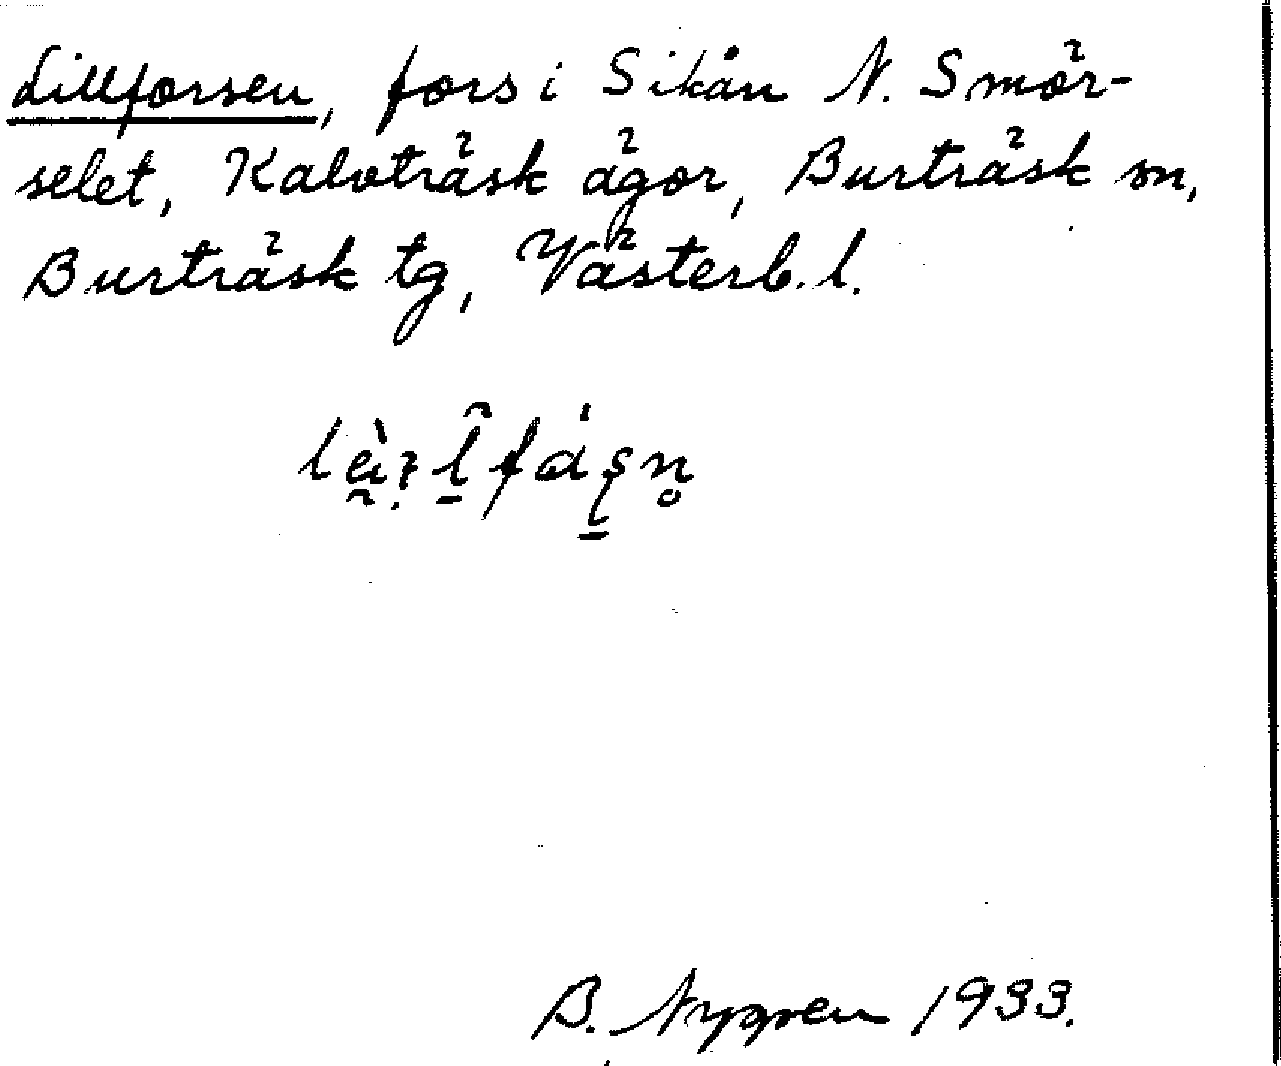 Lillforsen, fors i Sikån N. Smör-
selet, Kalvträsk ägor, Burträsk sn,
Burträsk tg, Västerb. l.
B. Nygren 1933.